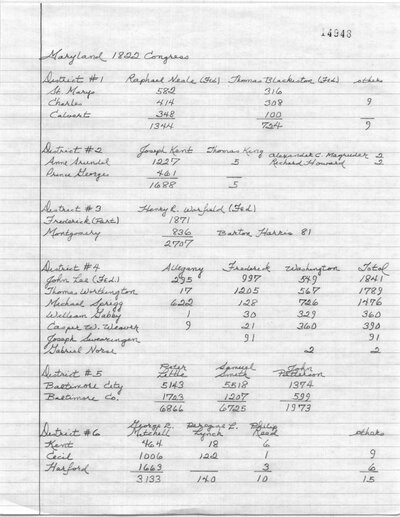 14948
Maryland 1822 Congress
District #1 Raphael Neale (Fed) Thomas Blackiston (Fed) others
St. Marys 582 316
Charles 414 308 9
Calvert 348 100
1344 724 9
District #2 Joseph Kent Thomas King Alexander C. Magruder 2
Anne Arundel 1227 5 Richard Howard 2
Prince George 461
1688 5
District #3 Henry R. Warfield (Fed)
Frederick (Part) 1871
Montgomery 836 Barton Harris 81
2707
District #4 Allegany Frederick Washington Total
John Lee (Fed.) 295 997 549 1841
Thomas Worthington 17 1205 567 1789
Michael Sprigg 622 128 726 1476
William Gabby 1 30 329 360
Casper W. Weaver 9 21 360 390
Joseph Swearingen 91 91
Gabriel Norse 2 2
District #5 Peter Little Samuel Smith John Patterson
Baltimore City 5143 5518 1374
Baltimore Co. 1723 1207 599
6866 6725 1973
District #6 George E. Mitchell Peregine L. Lynch Philip Reed others
Kent 464 18 6
Cecil 1006 122 1 9
Harford 1663 3 6
3133 140 10 15